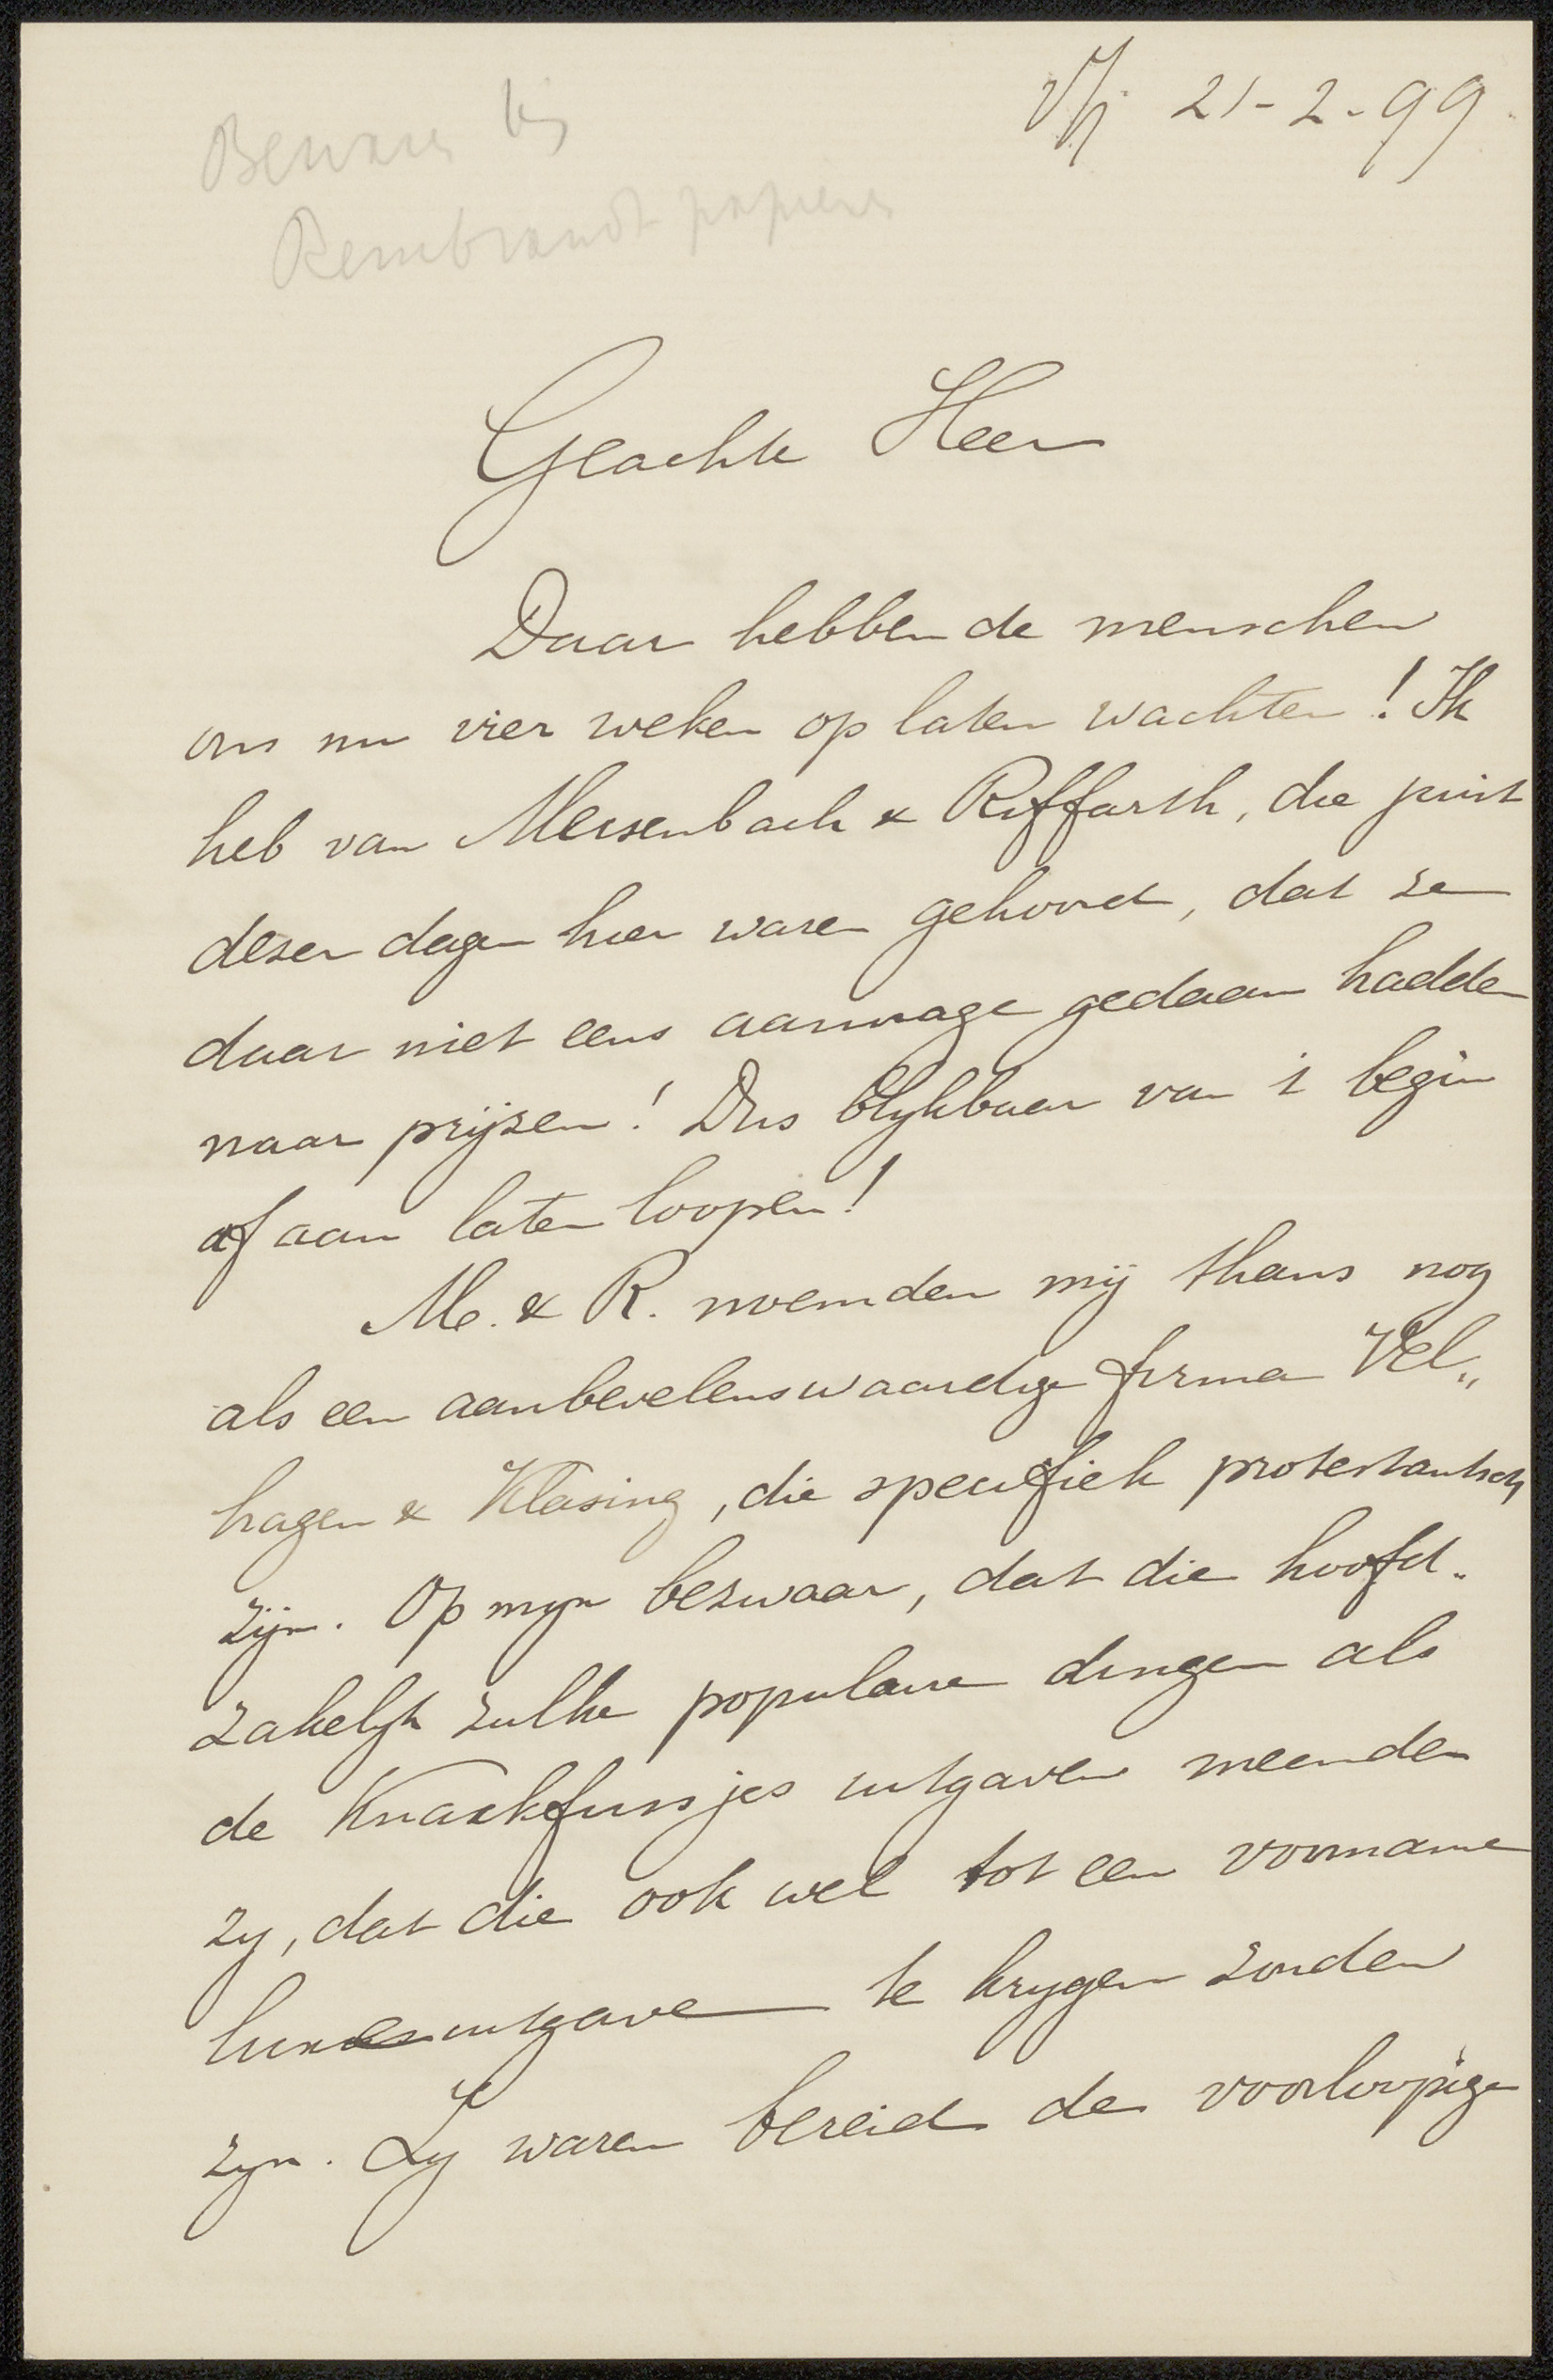 21-2-99
Bewaren bij
Rembrandt papieren
Geachte Heer
Daar hebben de menschen
ons nu vier weken op laten wachten! Ik
heb van Meisenbach & Riffarth, die juist
dezer dagen hier waren gehoord, dat ze
daar niet eens aanvrage gedaan hadden
naar prijzen! Dus blijkbaar van 't begin
af aan laten loopen!
M. & R. noemden mij thans nog
als een aanbevelenswaardige firma Vel„
hagen & Klasing, die specifiek protestantsch
zijn. Op mijn bezwaar, dat die hoofd„
zakelijk zulke populaire dingen als
de Knackfussjes uitgaven meenden
zij, dat die ook wel tot een voorname
luxe uitgave te krijgen zouden
zijn. Zij waren bereid de voorloopige